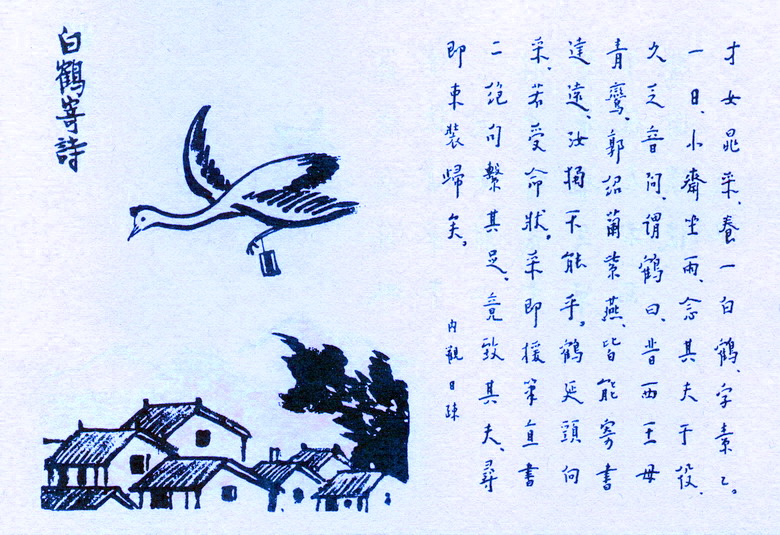 才女晁采、養一白鶴、字素乙。
一日、小齋坐雨、念其夫于役、
久乏音問、謂鶴曰、昔西王母
青鸞、郭紹蘭紫燕、皆能寄書
達遠、汝獨不能乎。鶴延頸向
采、若受命狀。采即援筆直書
二絕句繫其足、竟致其夫、尋
即束裝歸矣。
內觀日疎
白鶴寄詩